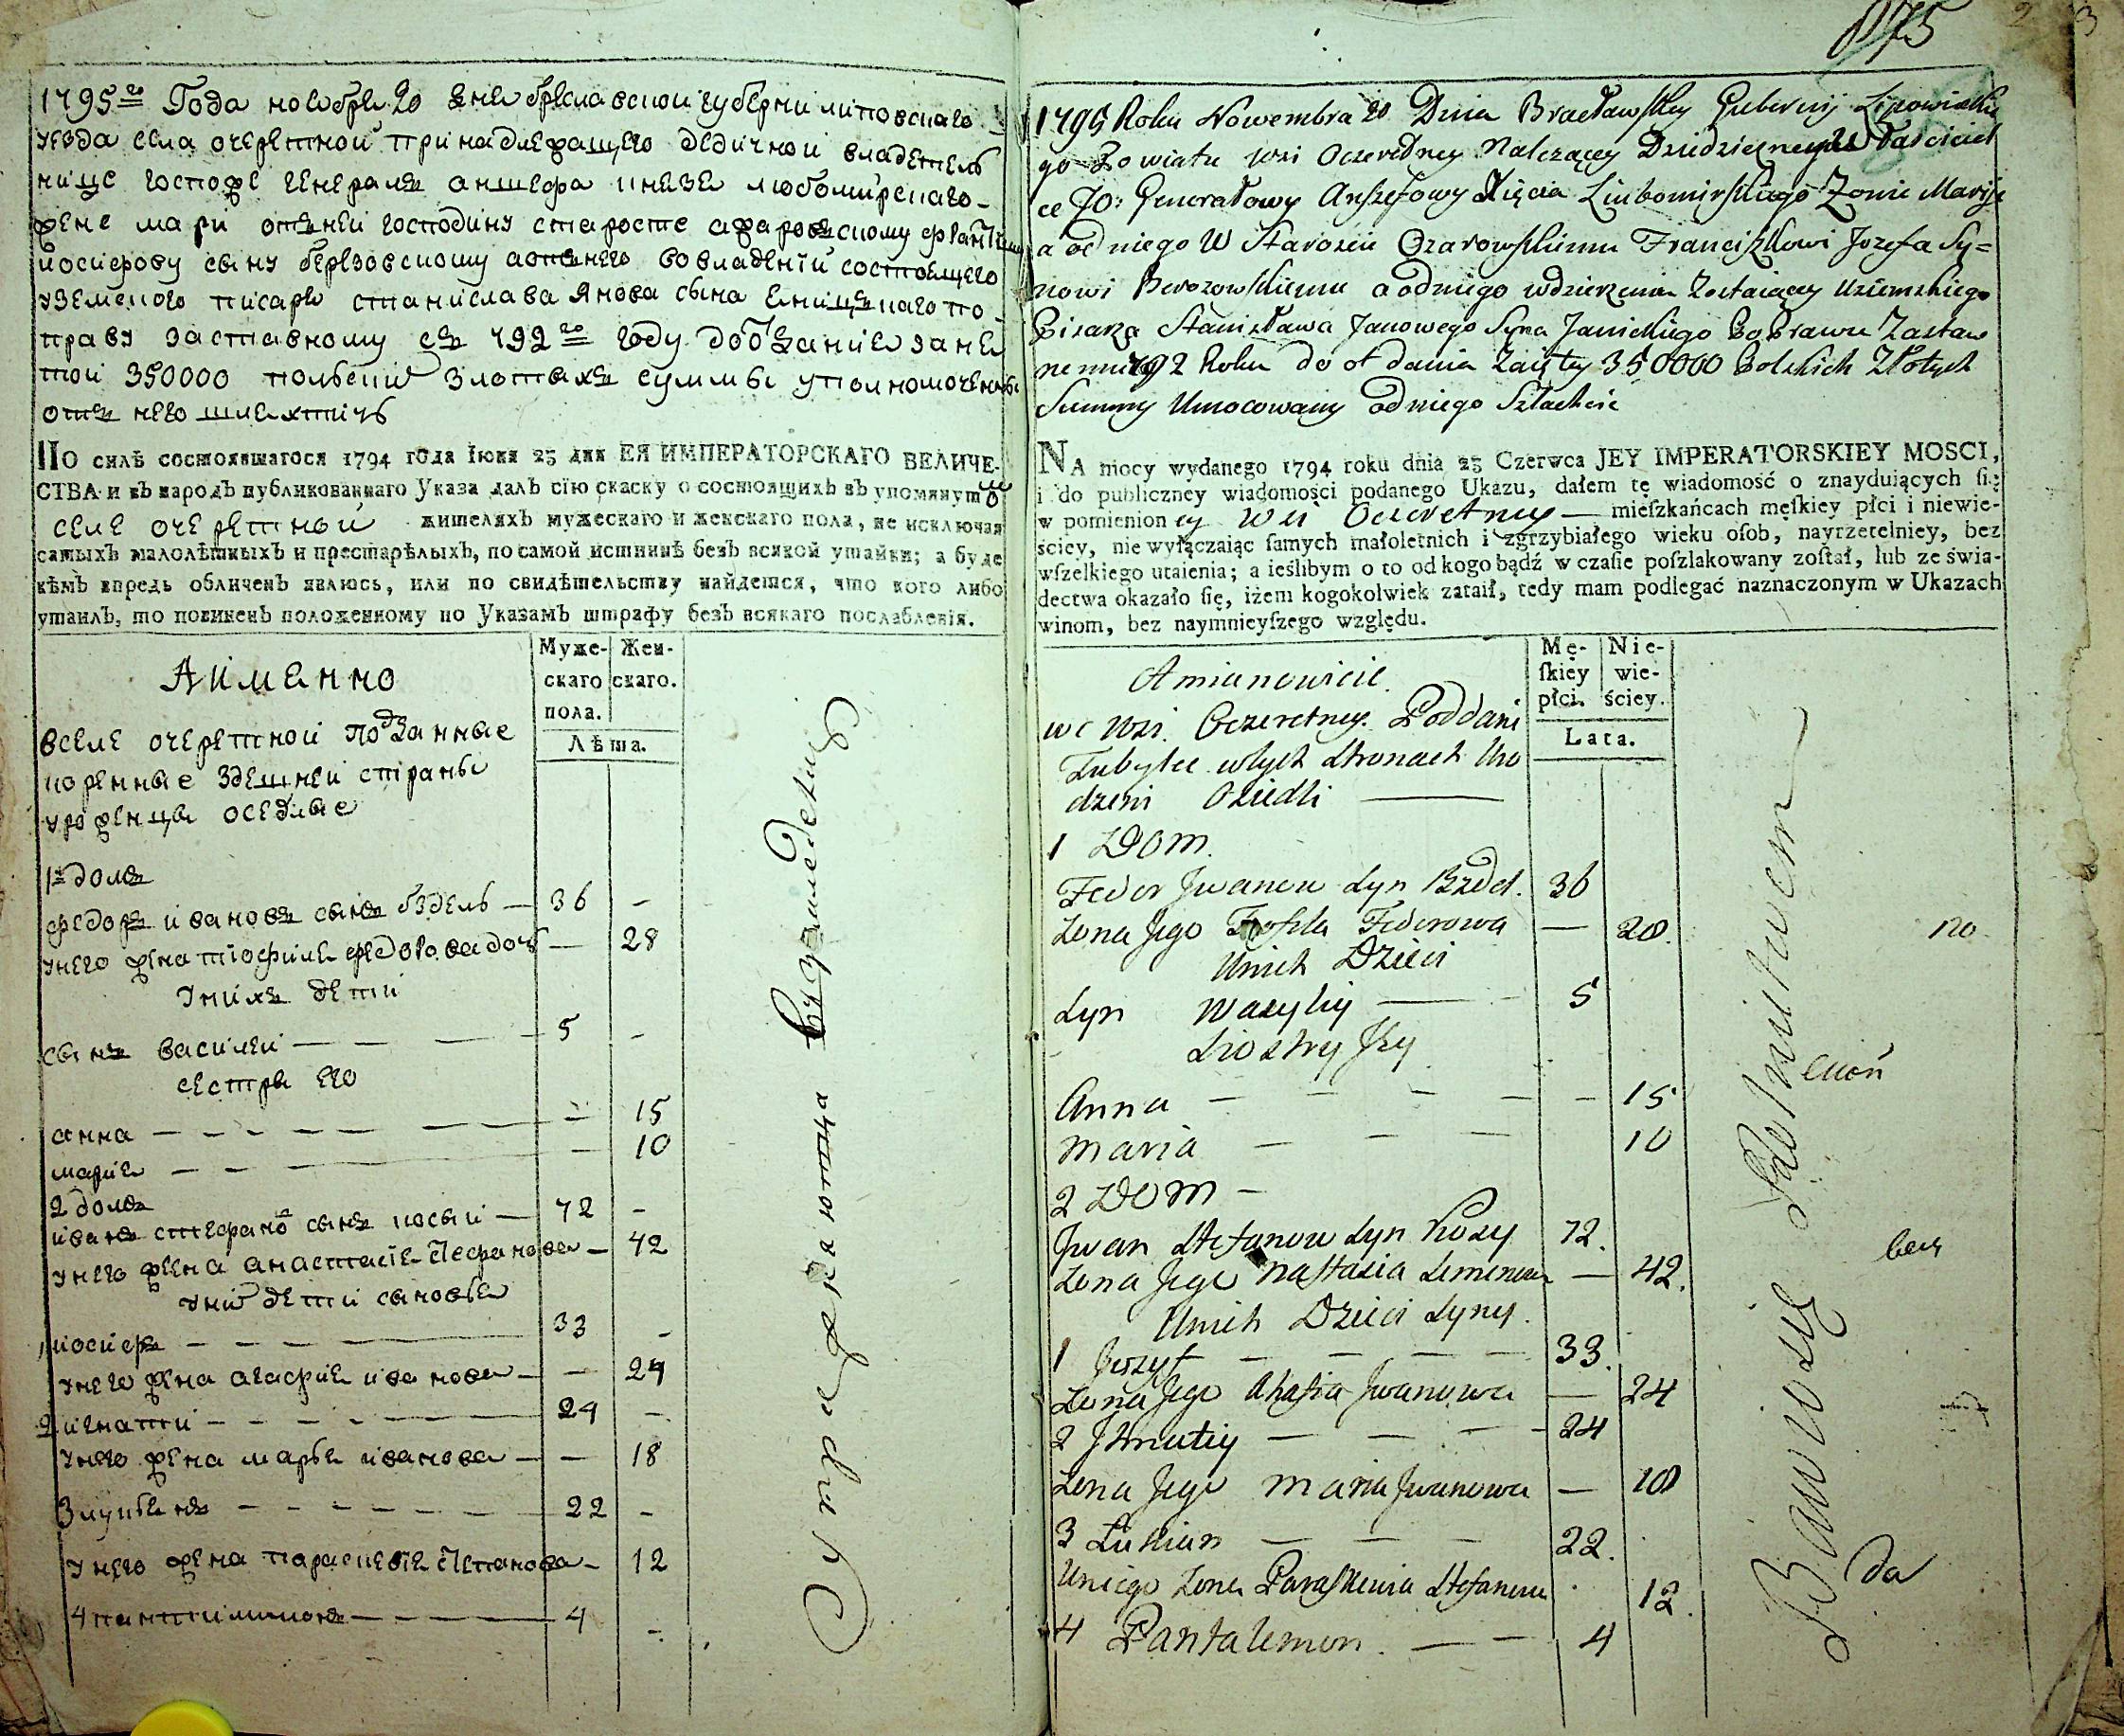 1795го Года ноября 20 дня браславской губерни липовскаго
уезда села очеретной принадлежащего дедичной владетель
нице госпоже генералъ аншефа князя любомирскаго
жене мари отъ ней господину старосте ожаровъскому францишку
иосифову сыну березовскому а отъ него во владеніи состоящего
уземского писаря станислава янова сына яницъкаго по
праву заставному съ 792го году до отъданія заня
той 350000 польскихъ злотыхъ суммы уполномоченны
отъ него шляхтичъ
ПО силѣ состоявшагося 1794 года Іюня 25 дня ЕЯ ИМПЕРАТОРСКАГО ВЕЛИЧЕ-
СТВА и въ народъ публикованнаго Указа далъ сію скаску о состоящихъ въ упомянутой
селе очеретной жителяхъ мужескаго и женскаго пола, не исключая
самыхъ малолѣтныхъ и престарѣлыхъ, по самой истиннѣ безъ всякой утайки; а буде
кѣмъ впредь обличенъ явлюсь, или по свидѣтельству найдется, что кого либо
утаилъ, то повиненъ положенному по Указамъ штрафу безъ всякаго послабленія.
Муже-
скаго
пола. Жен-
скаго.
Лѣта.
Аименно
в селе очеретной подданные
коренные здешней страны
уроженцы оседлые
1й домъ
федоръ ивановъ сынъ бздель — 36 -
у него жена тиофиля федорова дочь — 28
у нихъ дети
сынъ василей — — 5 -
сестры его
анна — — — — 15
мария — — — 10
2 домъ
иванъ стефановъ сынъ косый — 72 -
у него жена анастасія — 42
у нихъ дети сыновья
1 иосифъ — — — 33 -
у него жена агафия иванова — — 24
2 игнатий — — — 24 -
у него жена марья иванова — — 18
3 лукьянъ — — — 22 -
у него жена параскевія степанова — 12
4 пантилимонъ — — — 4 -
1175
1795 Roku Nowembra 20 Dnia Bracławskiey Gubernij Lipowieckie
go Powiatu wsi Oczeredney Nalezącey Dziedziczney Właściciel
ce JO: Generałowy Anszefowy Xięcia Lubomirskiego Zonie Maryi
a od niego W Staroscie Ozarowskiemu Franciszkowi Jozefa Sy=
nowi Berozowskiemu a od niego w dzierzeniu Zostaiący Uziemskiego
Pisarza Stanisława Janowego Syna Janickiego Po Prawu Zastaw
nemu z 792 Roku do oddania Zaiętey 350000 Polskich Złotych
Summy Umocowany od niego Szlachcic
NA mocy wydanego 1794 roku dnia 25 Czerwca JEY IMPERATORSKIEY MOSCI,
i do publiczney wiadomości podanego Ukazu, dałem tę wiadomość o znayduiących ſię
w pomienioney Wsi Oczeretney — mieſzkańcach męſkiey płci i niewie-
ściey, nie wyłączaiąc ſamych małoletnich i zgrzybiałego wieku oſob, nayrzetelniey, bez
wſzelkiego utaienia; a ieślibym o to od kogo bądź w czaſie poſzlakowany zoſtał, lub ze świa-
dectwa okazało się, iżem kogokolwiek zataił, tedy mam podlegać naznaczonym w Ukazach
winom, bez naymnieyſzego względu.
Mę-
ſkiey
płci. Nie-
wie-
ściey.
Lata.
A mianowicie
we wsi Oczeretney Poddani
Tubylce w tych Stronach Uro
dzeni Osiedli —
1 Dom
Fedor Jwanow Syn Bzdel. 36
Zona Jego Fedorowa — 28.
U nich Dzieci
Syn Wasylij — 5
Siostry Jey
Anna — — — — 15
Maria — — — 10
2 Dom —
Jwan Stefanow Syn Kosy 72.
Zona Jego Nastasia Semenowa — 42.
U nich Dzieci Syny.
1 Jozyf — — — 33.
Zona Jego Ahafia Jwanowa — 24
2 Jhnatiy — — — 24
Zona Jego Maria Jwanowa — 18
3 Lukian — — — 22.
U niego Zona Paraskewia Stefanowa 12.
4 Pantalemon. — — 4